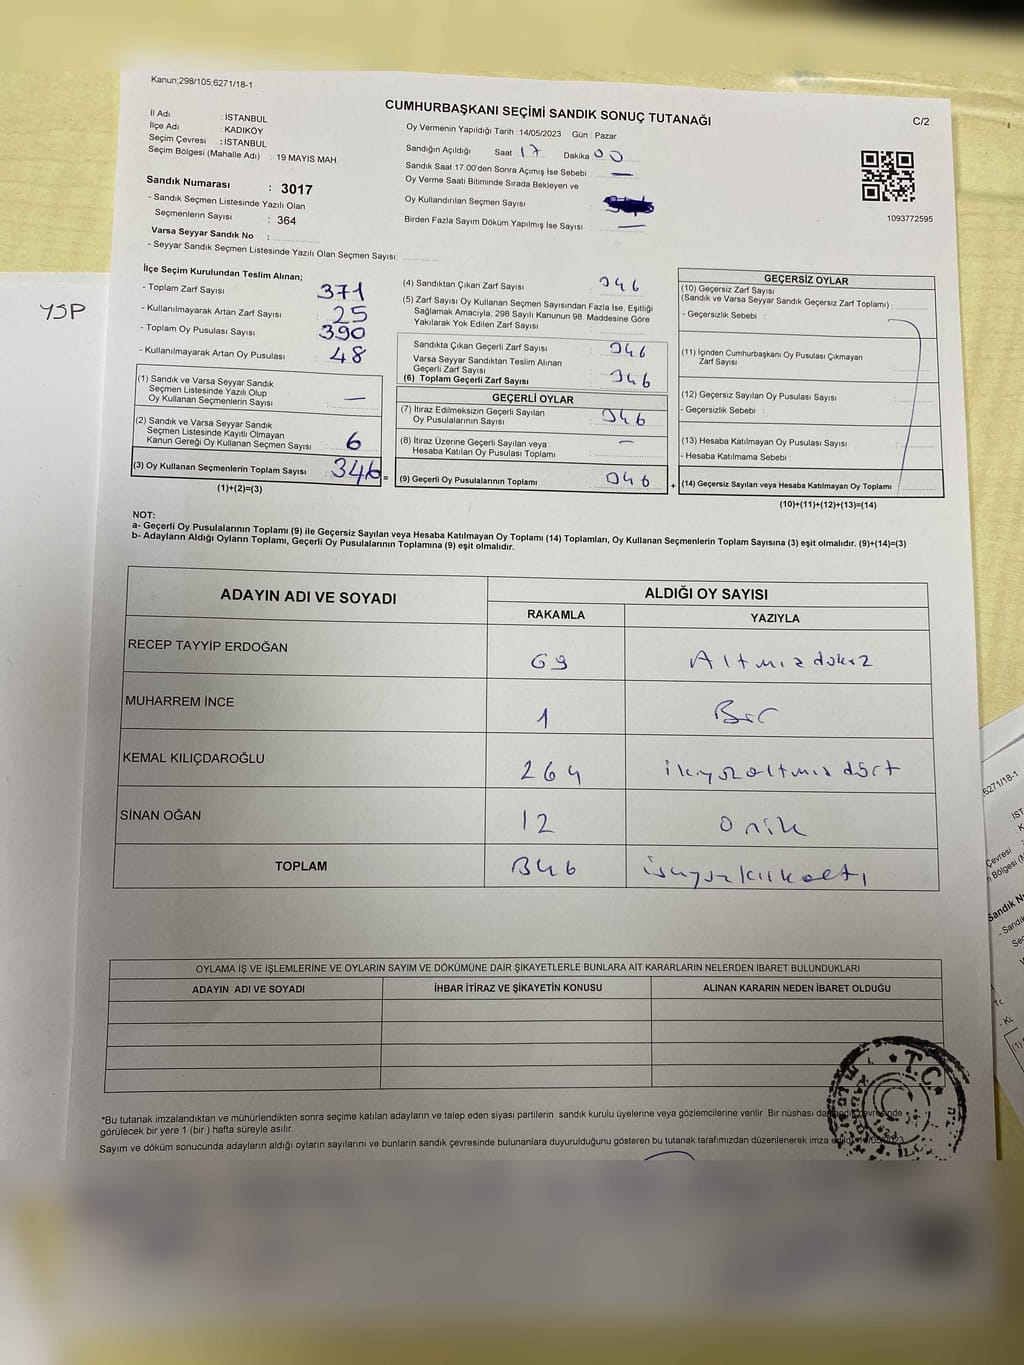 Kanun;298/105;6271/18-1
CUMHURBAŞKANI SEÇİMİ SANDIK SONUÇ TUTANAĞI
C/2
İl Adı : İSTANBUL
İlçe Adı : KADIKÖY
Seçim Çevresi : İSTANBUL
Seçim Bölgesi (Mahalle Adı) : 19 MAYIS MAH
Sandık Numarası : 3017
- Sandık Seçmen Listesinde Yazılı Olan
Seçmenlerin Sayısı : 364
Varsa Seyyar Sandık No :
- Seyyar Sandık Seçmen Listesinde Yazılı Olan Seçmen Sayısı:
Oy Vermenin Yapıldığı Tarih : 14/05/2023 Gün : Pazar
Sandığın Açıldığı Saat 17 Dakika 00
Sandık Saat 17.00'den Sonra Açımış İse Sebebi : —
Oy Verme Saati Bitiminde Sırada Bekleyen ve
Oy Kullandırılan Seçmen Sayısı
Birden Fazla Sayım Döküm Yapılmış İse Sayısı : —
1093772595
YSP
İlçe Seçim Kurulundan Teslim Alınan;
- Toplam Zarf Sayısı : 371
- Kullanılmayarak Artan Zarf Sayısı : 25
- Toplam Oy Pusulası Sayısı : 390
- Kullanılmayarak Artan Oy Pusulası : 48
(1) Sandık ve Varsa Seyyar Sandık
Seçmen Listesinde Yazılı Olup
Oy Kullanan Seçmenlerin Sayısı : —
(2) Sandık ve Varsa Seyyar Sandık
Seçmen Listesinde Kayıtlı Olmayan
Kanun Gereği Oy Kullanan Seçmen Sayısı : 6
(3) Oy Kullanan Seçmenlerin Toplam Sayısı : 346 =
(1)+(2)=(3)
(4) Sandıktan Çıkan Zarf Sayısı : 346
(5) Zarf Sayısı Oy Kullanan Seçmen Sayısından Fazla İse, Eşitliği
Sağlamak Amacıyla, 298 Sayılı Kanunun 98. Maddesine Göre
Yakılarak Yok Edilen Zarf Sayısı
Sandıkta Çıkan Geçerli Zarf Sayısı : 346
Varsa Seyyar Sandıktan Teslim Alınan
Geçerli Zarf Sayısı
(6) Toplam Geçerli Zarf Sayısı : 346
GEÇERLİ OYLAR
(7) İtiraz Edilmeksizin Geçerli Sayılan
Oy Pusulalarının Sayısı : 346
(8) İtiraz Üzerine Geçerli Sayılan veya
Hesaba Katılan Oy Pusulası Toplamı : —
(9) Geçerli Oy Pusulalarının Toplamı : 346 +
GEÇERSİZ OYLAR
(10) Geçersiz Zarf Sayısı
(Sandık ve Varsa Seyyar Sandık Geçersiz Zarf Toplamı) :
- Geçersizlik Sebebi :
(11) İçinden Cumhurbaşkanı Oy Pusulası Çıkmayan
Zarf Sayısı
(12) Geçersiz Sayılan Oy Pusulası Sayısı :
- Geçersizlik Sebebi :
(13) Hesaba Katılmayan Oy Pusulası Sayısı :
- Hesaba Katılmama Sebebi :
(14) Geçersiz Sayılan veya Hesaba Katılmayan Oy Toplamı :
(10)+(11)+(12)+(13)=(14)
NOT:
a- Geçerli Oy Pusulalarının Toplamı (9) ile Geçersiz Sayılan veya Hesaba Katılmayan Oy Toplamı (14) Toplamları, Oy Kullanan Seçmenlerin Toplam Sayısına (3) eşit olmalıdır. (9)+(14)=(3)
b- Adayların Aldığı Oyların Toplamı, Geçerli Oy Pusulalarının Toplamına (9) eşit olmalıdır.
ADAYIN ADI VE SOYADI
ALDIĞI OY SAYISI
RAKAMLA
YAZIYLA
RECEP TAYYİP ERDOĞAN 69 Altmışdokuz
MUHARREM İNCE 1 Bir
KEMAL KILIÇDAROĞLU 264 ikiyüzaltmış dört
SİNAN OĞAN 12 Oniki
TOPLAM 346
OYLAMA İŞ VE İŞLEMLERİNE VE OYLARIN SAYIM VE DÖKÜMÜNE DAİR ŞİKAYETLERLE BUNLARA AİT KARARLARIN NELERDEN İBARET BULUNDUKLARI
ADAYIN ADI VE SOYADI
İHBAR İTİRAZ VE ŞİKAYETİN KONUSU
ALINAN KARARIN NEDEN İBARET OLDUĞU
*Bu tutanak imzalandıktan ve mühürlendikten sonra seçime katılan adayların ve talep eden siyasi partilerin sandık kurulu üyelerine veya gözlemcilerine verilir. Bir nüshası da
görülecek bir yere 1 (bir ) hafta süreyle asılır.
Sayım ve döküm sonucunda adayların aldığı oyların sayılarını ve bunların sandık çevresinde bulunanlara duyurulduğunu gösteren bu tutanak tarafımızdan düzenlenerek imza
T.C.
6271/18-1
Sandık